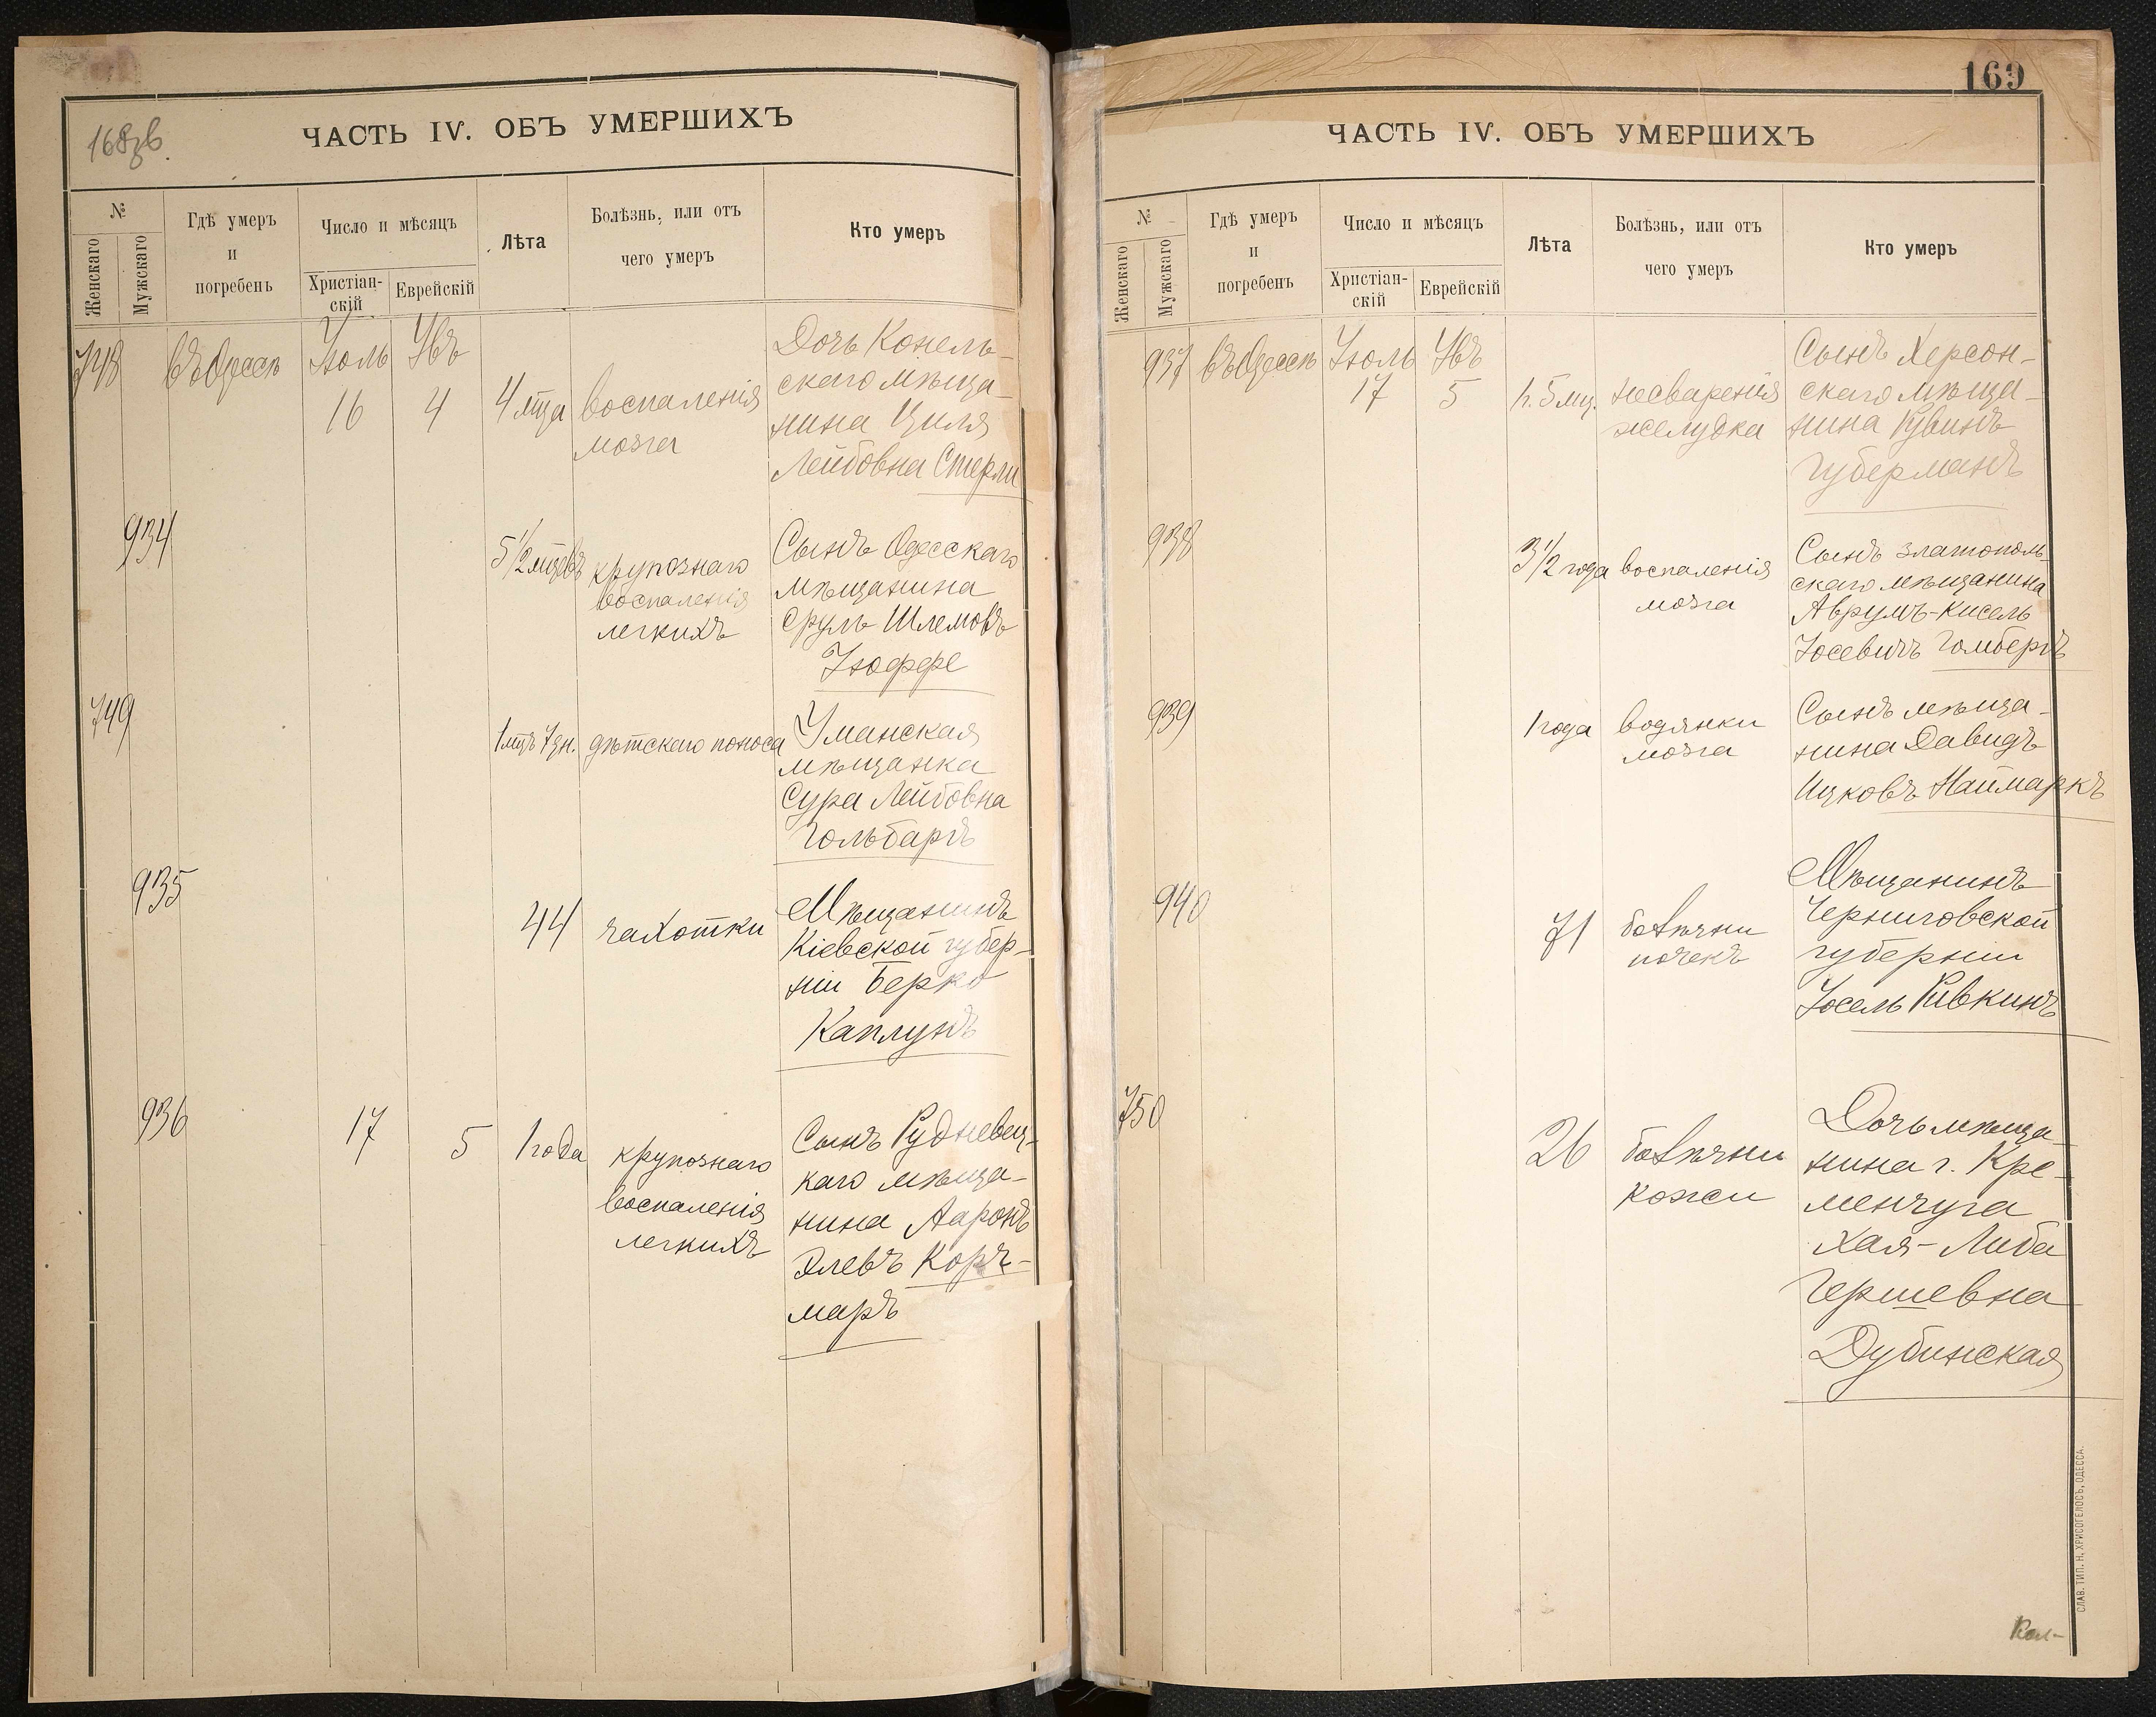 168зв.
ЧАСТЬ IV. ОБЪ УМЕРШИХЪ
№
Женскаго
Мужскаго
Гдѣ умеръ
и
погребенъ
Число и мѣсяцъ
Христіан-
скій
Еврейскій
Лѣта
Болѣзнь, или отъ
чего умеръ
Кто умеръ
748
въ Одессѣ
Іюль
16
Увъ
4
4 мца
воспаленія
мозга
Дочь Конель-
скаго мѣща-
нина Циля
Лейбовна Стерли
934
5 1/2 мцевъ
крупознаго
воспаленія
легкихъ
Сынъ Одесскаго
мѣщанина
Сруль Шлемовъ
Іоффе
749
1 мцъ 7 дн.
дѣтскаго поноса
Уманская
мѣщанка
Сура Лейбовна
Гольбаргъ
935
44
чахотки
Мѣщанинъ
Кіевской губер-
ніи Берко
Каплунъ
936
17
5
1 года
крупознаго
воспаленія
легкихъ
Сынъ Рудневец-
каго мѣща-
нина Ааронъ
Элевъ Корч-
маръ
169
ЧАСТЬ IV. ОБЪ УМЕРШИХЪ
№
Женскаго
Мужскаго
Гдѣ умеръ
и
погребенъ
Число и мѣсяцъ
Христіан-
скій
Еврейскій
Лѣта
Болѣзнь, или отъ
чего умеръ
Кто умеръ
937
въ Одессѣ
Іюль
17
Увъ
5
1 г. 5 мц.
несваренія
желудка
Сынъ Херсон-
скаго мѣща-
нина Рувинъ
Губерманъ
938
3 1/2 года
воспаленія
мозга
Сынъ златополь-
скаго мѣщанина
Аврумъ-Кисель
Іосевичъ Гомбергъ
939
1 года
водянки
мозга
Сынъ мѣща-
нина Давидъ
Ицковъ Наймаркъ
940
71
болѣзни
почекъ
Мѣщанинъ
Черниговской
губерніи
Іосель Ривкинъ
750
26
болѣзни
кожи
Дочь мѣща-
нина г. Кре-
менчуга
Хая-Либа
Гершевна
Дубинская
СЛАВ. ТИП. Н. ХРИСОГЕЛОСЪ, ОДЕССА.